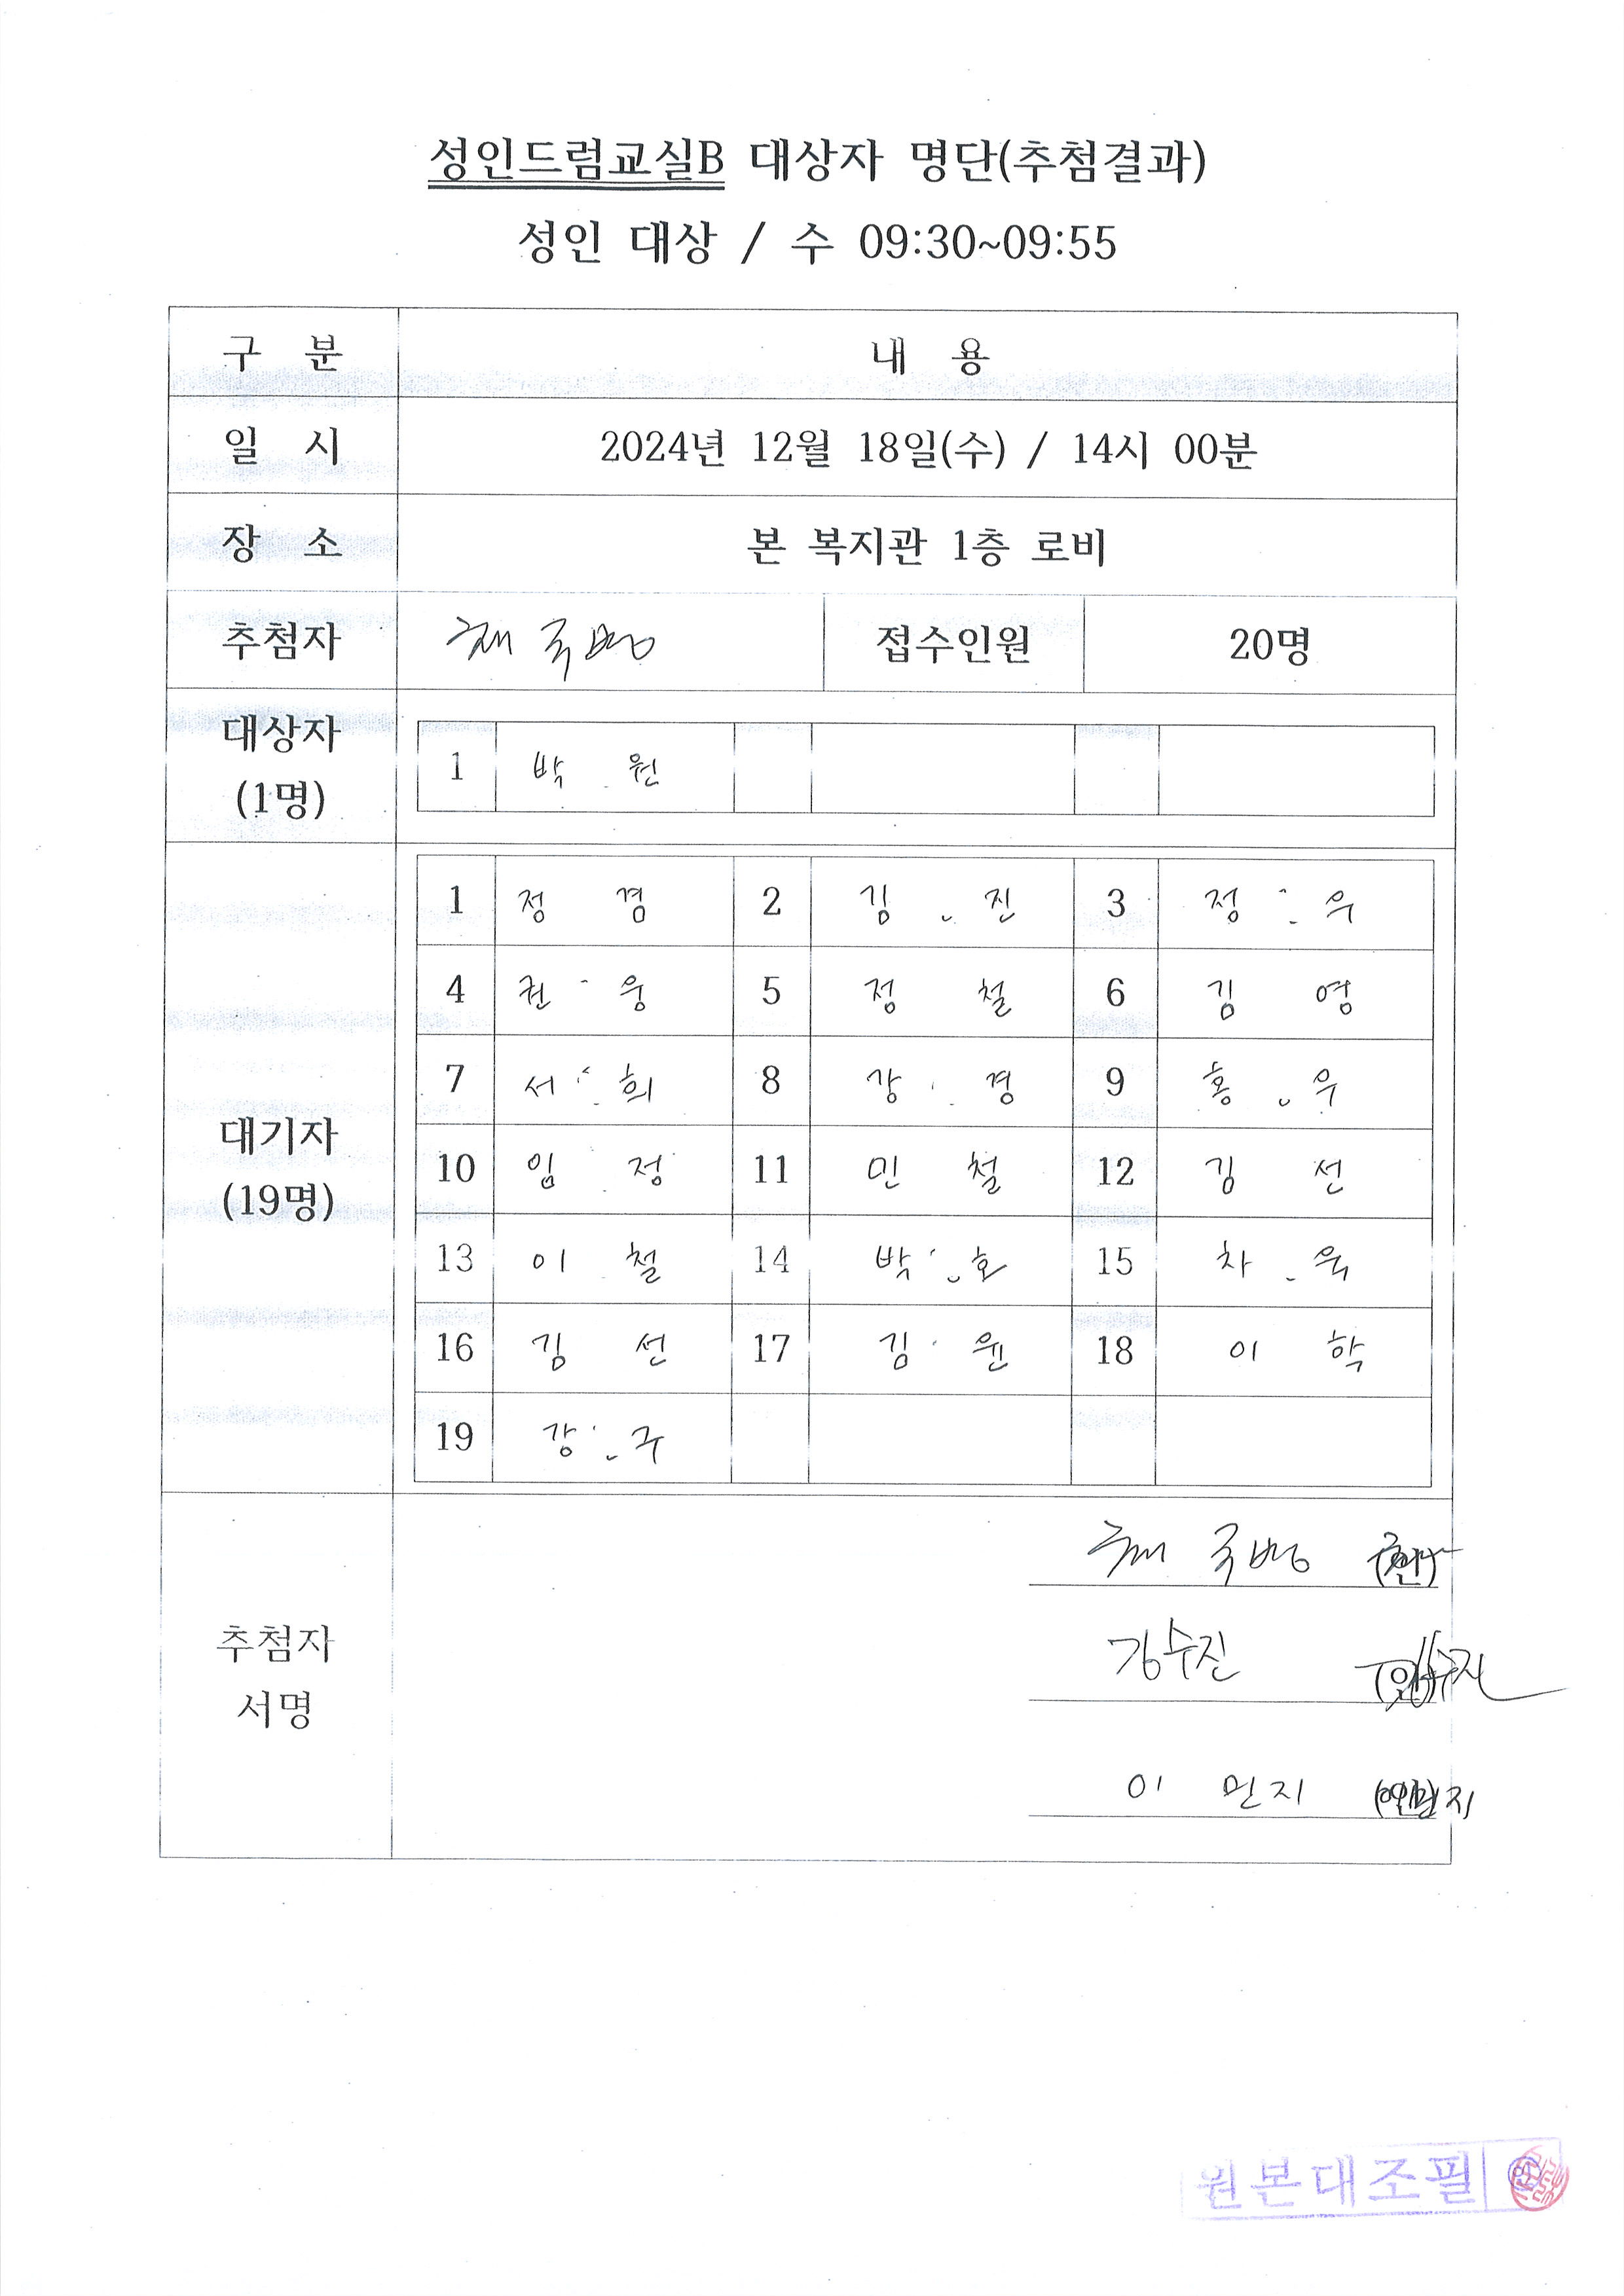 성인드럼교실B 대상자 명단(추첨결과)
성인 대상 / 수 09:30~09:55
구 분 내 용
일 시 2024년 12월 18일(수) / 14시 00분
장 소 본 복지관 1층 로비
추첨자 채국병 접수인원 20명
대상자
(1명)
1 박 원
대기자
(19명)
1 정 겸 2 김 진 3 정 우
4 권 웅 5 정 철 6 김 영
7 서 희 8 강 경 9 홍 우
10 임 정 11 민 철 12 김 선
13 이 철 14 박 호 15 차 욱
16 김 선 17 김 윤 18 이 학
19 강 구
추첨자
서명
채국병 (인)
김수진 (인)
이 민지 (인)
원본대조필